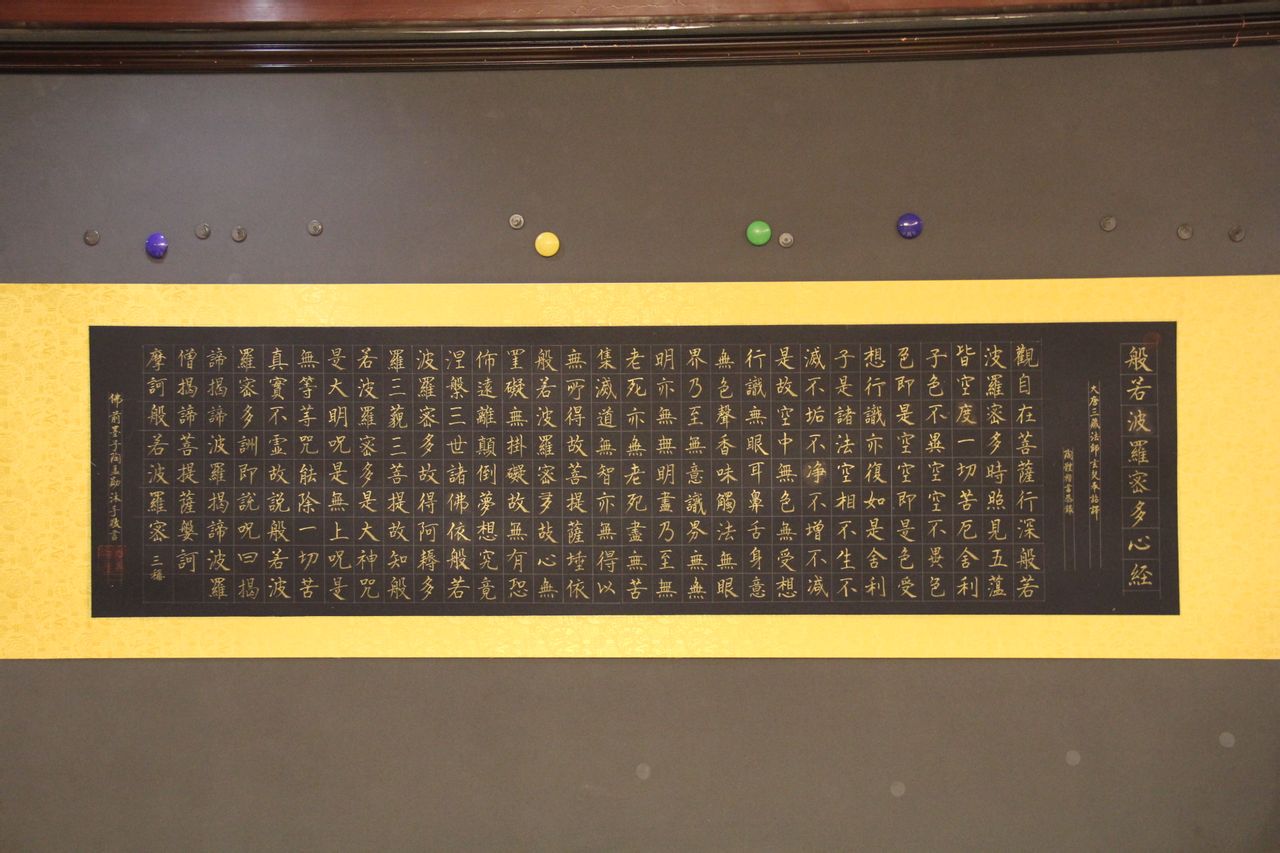 般若波羅密多心經
大唐三藏法師玄奘奉詔譯
觀自在菩薩行深般若
波羅密多時照見五蘊
皆空度一切苦厄舍利
子色不異空空不異色
色即是空空即是色受
想行識亦復如是舍利
子是諸法空相不生不
滅不垢不淨不增不減
是故空中無色無受想
行識無眼耳鼻舌身意
無色聲香味觸法無眼
界乃至無意識界無無
明亦無無明盡乃至無
老死亦無老死盡無苦
集滅道無智亦無得以
無所得故菩提薩埵依
般若波羅密多故心無
罣礙無掛礙故無有恐
佈遠離顛倒夢想究竟
涅槃三世諸佛依般若
波羅密多故得阿耨多
羅三藐三菩提故知般
若波羅密多是大神咒
是大明呪是無上呪是
無等等咒能除一切苦
真實不虛故說般若波
羅密多訓即說呪曰揭
諦揭諦波羅揭諦波羅
僧揭諦菩提薩婆訶
摩訶般若波羅密 三稱
佛前弟子 沐手敬書